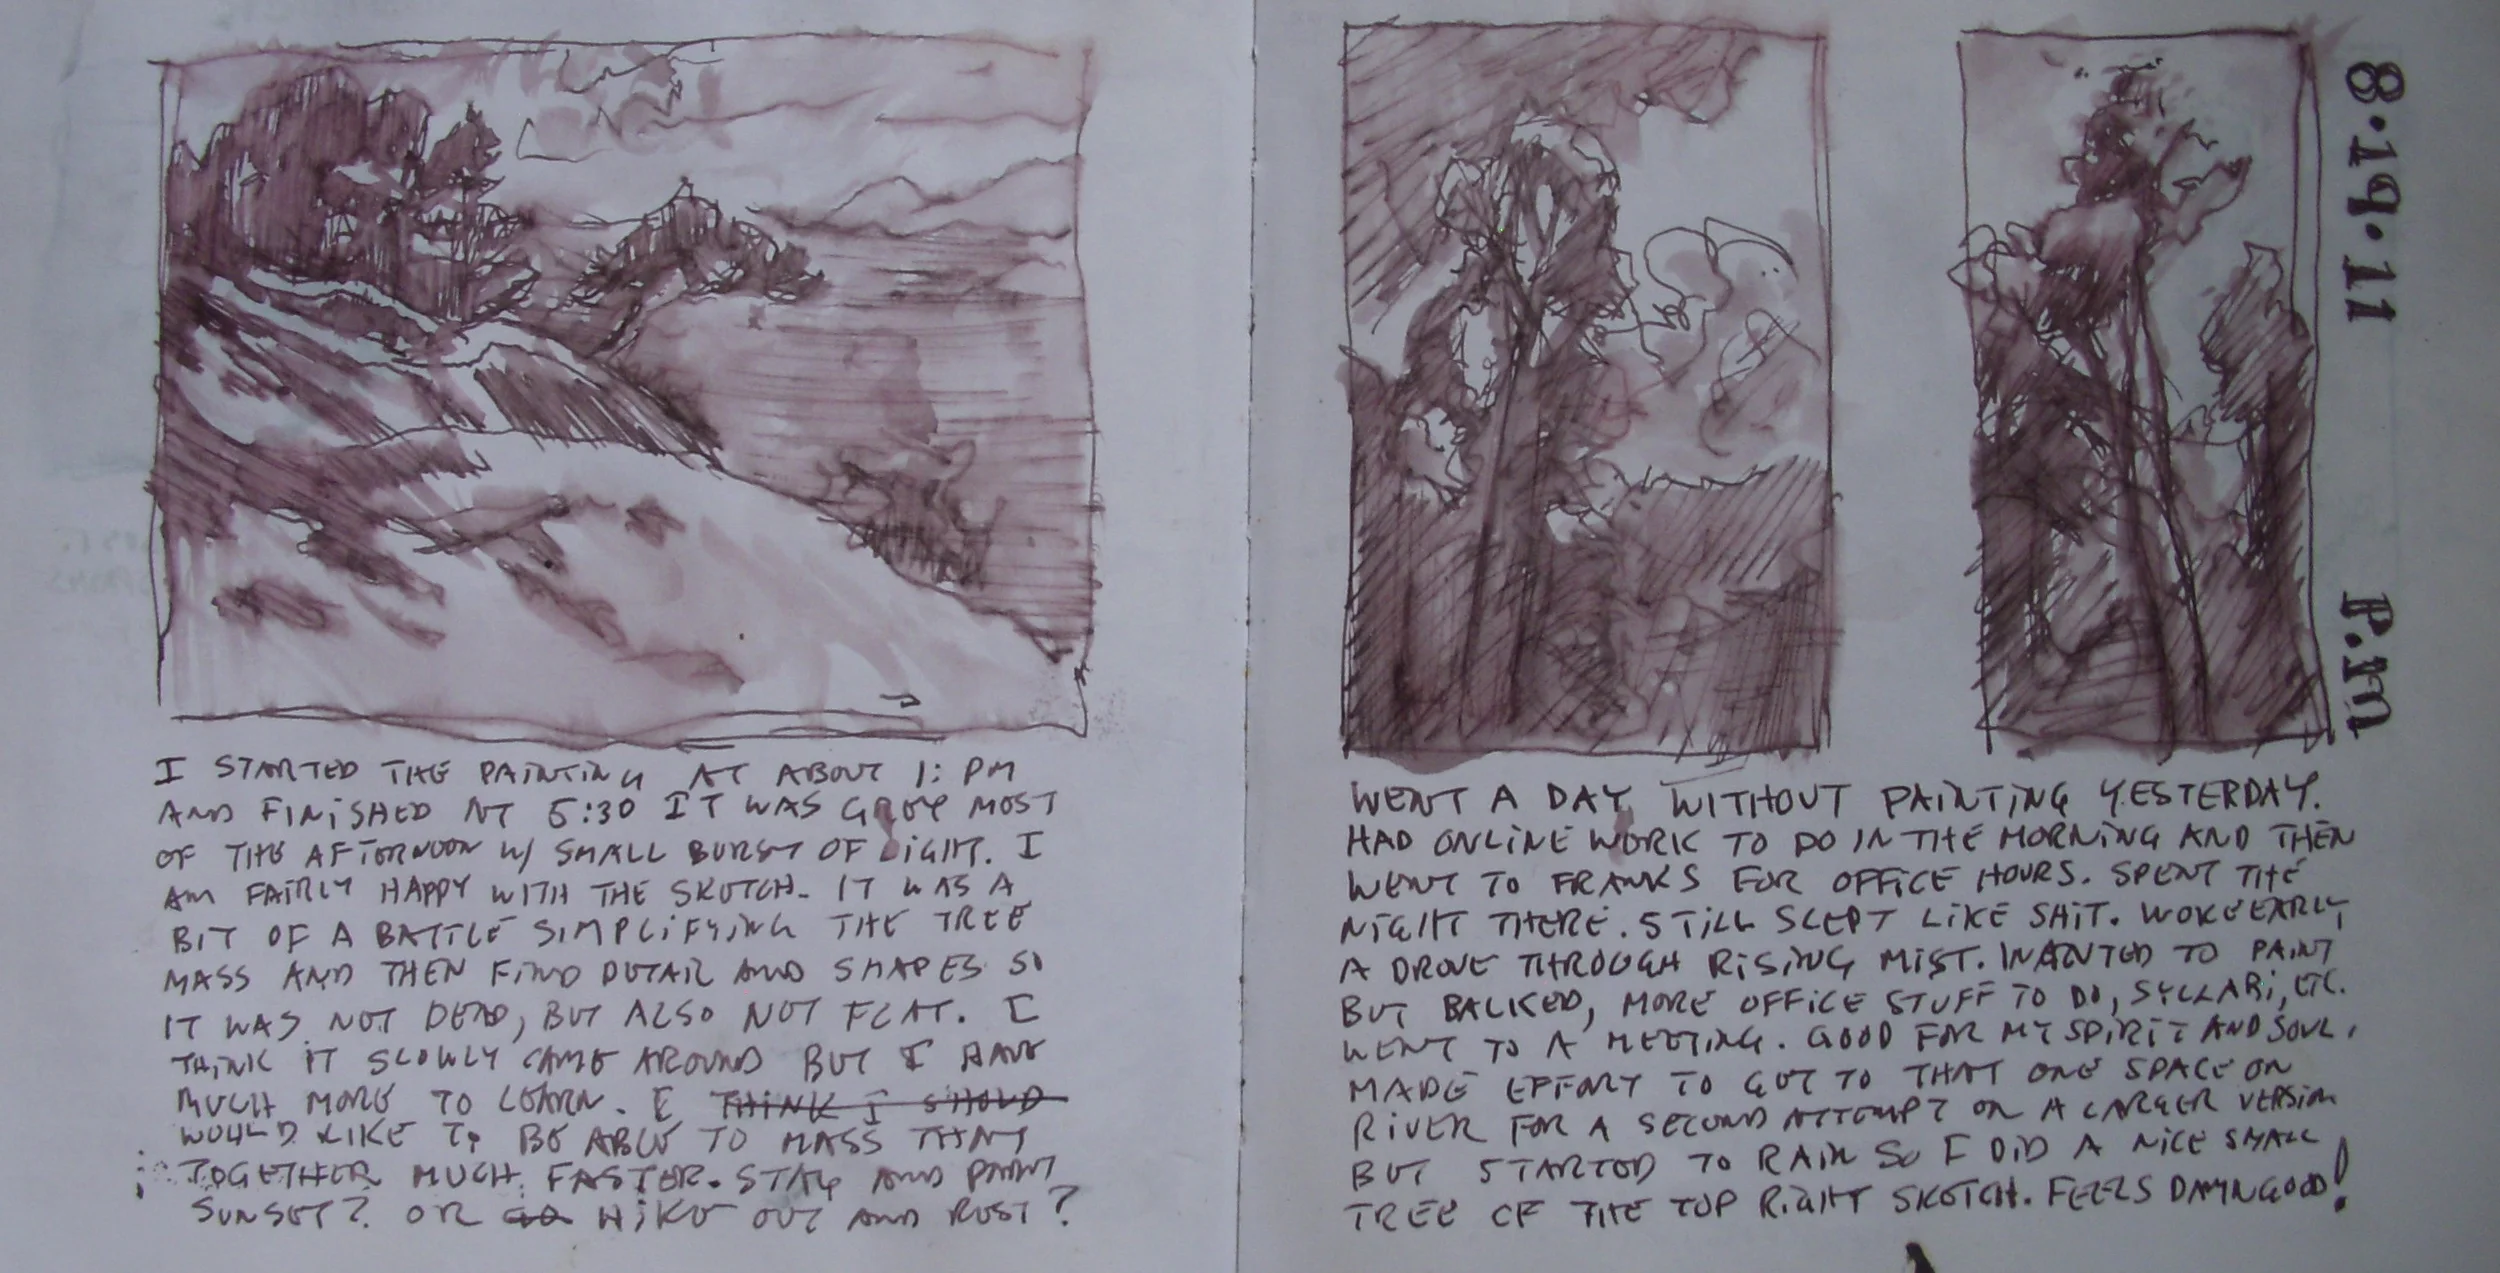 I STARTED THE PAINTING AT ABOUT 1: PM
AND FINISHED AT 5:30 IT WAS GREY MOST
OF THE AFTERNOON W/ SMALL BURST OF LIGHT. I
AM FAIRLY HAPPY WITH THE SKETCH. IT WAS A
BIT OF A BATTLE SIMPLIFYING THE TREE
MASS AND THEN FIND DETAIL AND SHAPES SO
IT WAS NOT DEAD, BUT ALSO NOT FLAT. I
THINK IT SLOWLY CAME AROUND BUT I HAVE
MUCH MORE TO LEARN. I THINK I SHOULD
WOULD LIKE TO BE ABLE TO MASS THAT
TOGETHER MUCH FASTER. STAY AND PAINT
SUNSET? OR GO HIKE OUT AND REST?
8.19.11 P.M
WENT A DAY WITHOUT PAINTING YESTERDAY.
HAD ONLINE WORK TO DO IN THE MORNING AND THEN
WENT TO FRANKS FOR OFFICE HOURS. SPENT THE
NIGHT THERE. STILL SLEPT LIKE SHIT. WOKE EARLY
A DROVE THROUGH RISING MIST. WANTED TO PAINT
BUT BALKED, MORE OFFICE STUFF TO DO, SYLLABI, ETC.
WENT TO A MEETING. GOOD FOR MY SPIRIT AND SOUL.
MADE EFFORT TO GET TO THAT ONE SPACE ON
RIVER FOR A SECOND ATTEMPT ON A LARGER VERSION
BUT STARTED TO RAIN SO I DID A NICE SMALL
TREE OF THE TOP RIGHT SKETCH. FEELS DAMN GOOD!